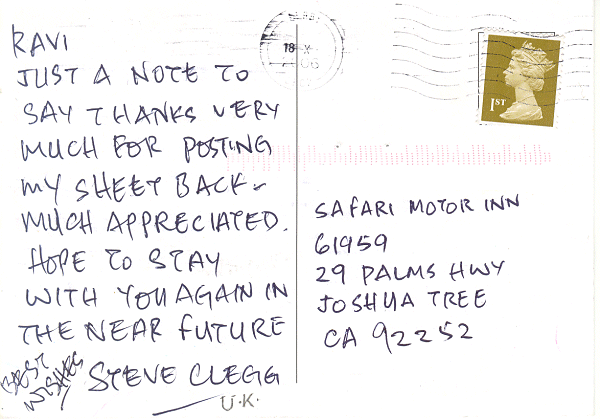 RAVI
JUST A NOTE TO
SAY THANKS VERY
MUCH FOR POSTING
MY SHEET BACK -
MUCH APPRECIATED.
HOPE TO STAY
WITH YOU AGAIN IN
THE NEAR FUTURE
BEST
WISHES
STEVE CLEGG
U.K.
18 X
1ST
SAFARI MOTOR INN
61959
29 PALMS HWY
JOSHUA TREE
CA 92252